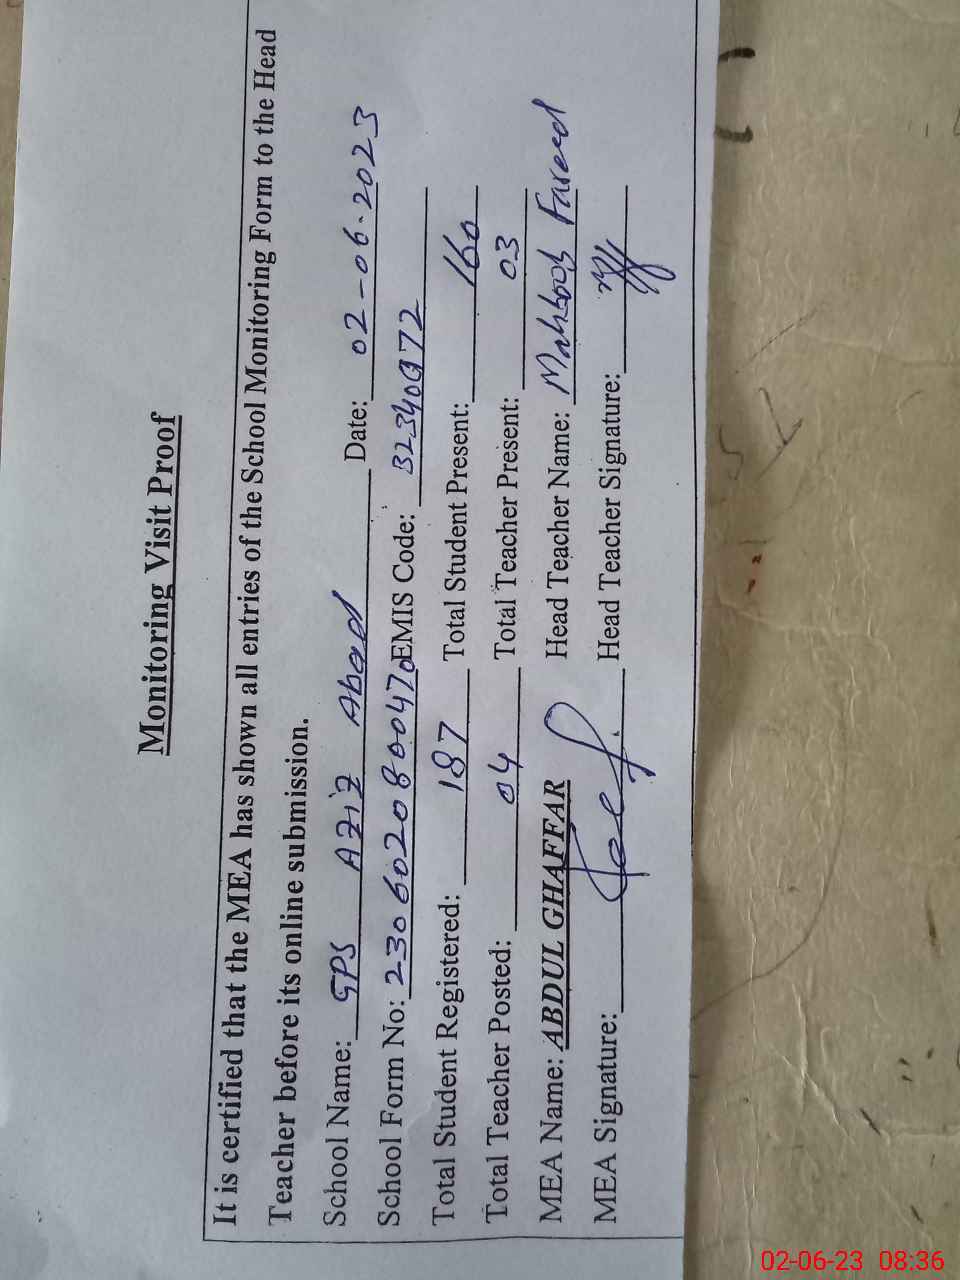 Monitoring Visit Proof
It is certified that the MEA has shown all entries of the School Monitoring Form to the Head
Teacher before its online submission.
School Name: GPS Aziz Abad Date: 02-06-2023
School Form No: 2306020800470 EMIS Code: 32340972
Total Student Registered: 187 Total Student Present: 160
Total Teacher Posted: 04 Total Teacher Present: 03
MEA Name: ABDUL GHAFFAR Head Teacher Name: Mahboob Fareed
MEA Signature: Head Teacher Signature:
02-06-23 08:36